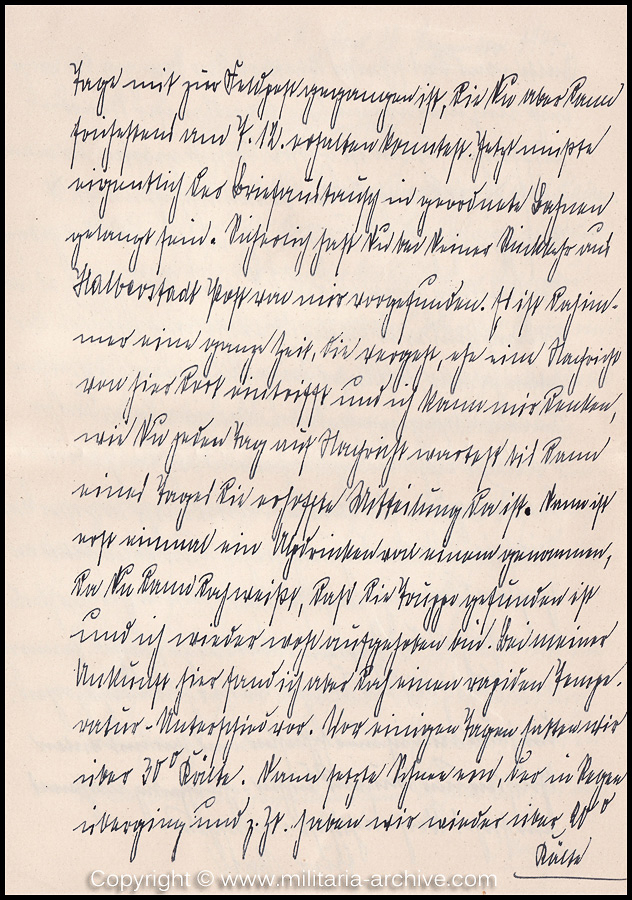 Tage mit zur Feldpost gegangen ist, die Du aber dann
frühestens am 7. 12. erhalten konntest. Jetzt müßte
eigentlich der Briefaustausch in geordnete Bahnen
gelangt sein. Sicherlich hast Du bei Deiner Rückkehr aus
Halberstadt Post von mir vorgefunden. Es ist doch im-
mer eine ganze Zeit, die vergeht, ehe eine Nachricht
von hier dort eintrifft und ich kann mir denken,
wie Du jeden Tag auf Nachricht wartest bis dann
eines Tages die erhoffte Mitteilung da ist. Dann ist
erst einmal ein von einem genommen,
da Du dann doch weißt, daß die Truppe gefunden ist
und ich wieder wohl aufgehoben bin. Bei meiner
Ankunft hier fand ich aber doch einen rapiden Tempe-
ratur-Unterschied vor. Vor einigen Tagen hatten wir
über 30° Kälte. Dann setzte Schnee ein, der in Regen
überging und z. Zt. haben wir wieder über 20°
Kälte
Copyright © www.militaria-archive.com